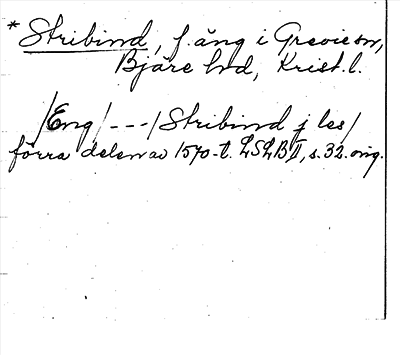 * Stribind, f. äng i Grevie sn,
Bjäre hd, Krist. l.
/Eng/ --- / Stribind j les /
förra delen av 1570-t. LSLB II, s. 32. orig.